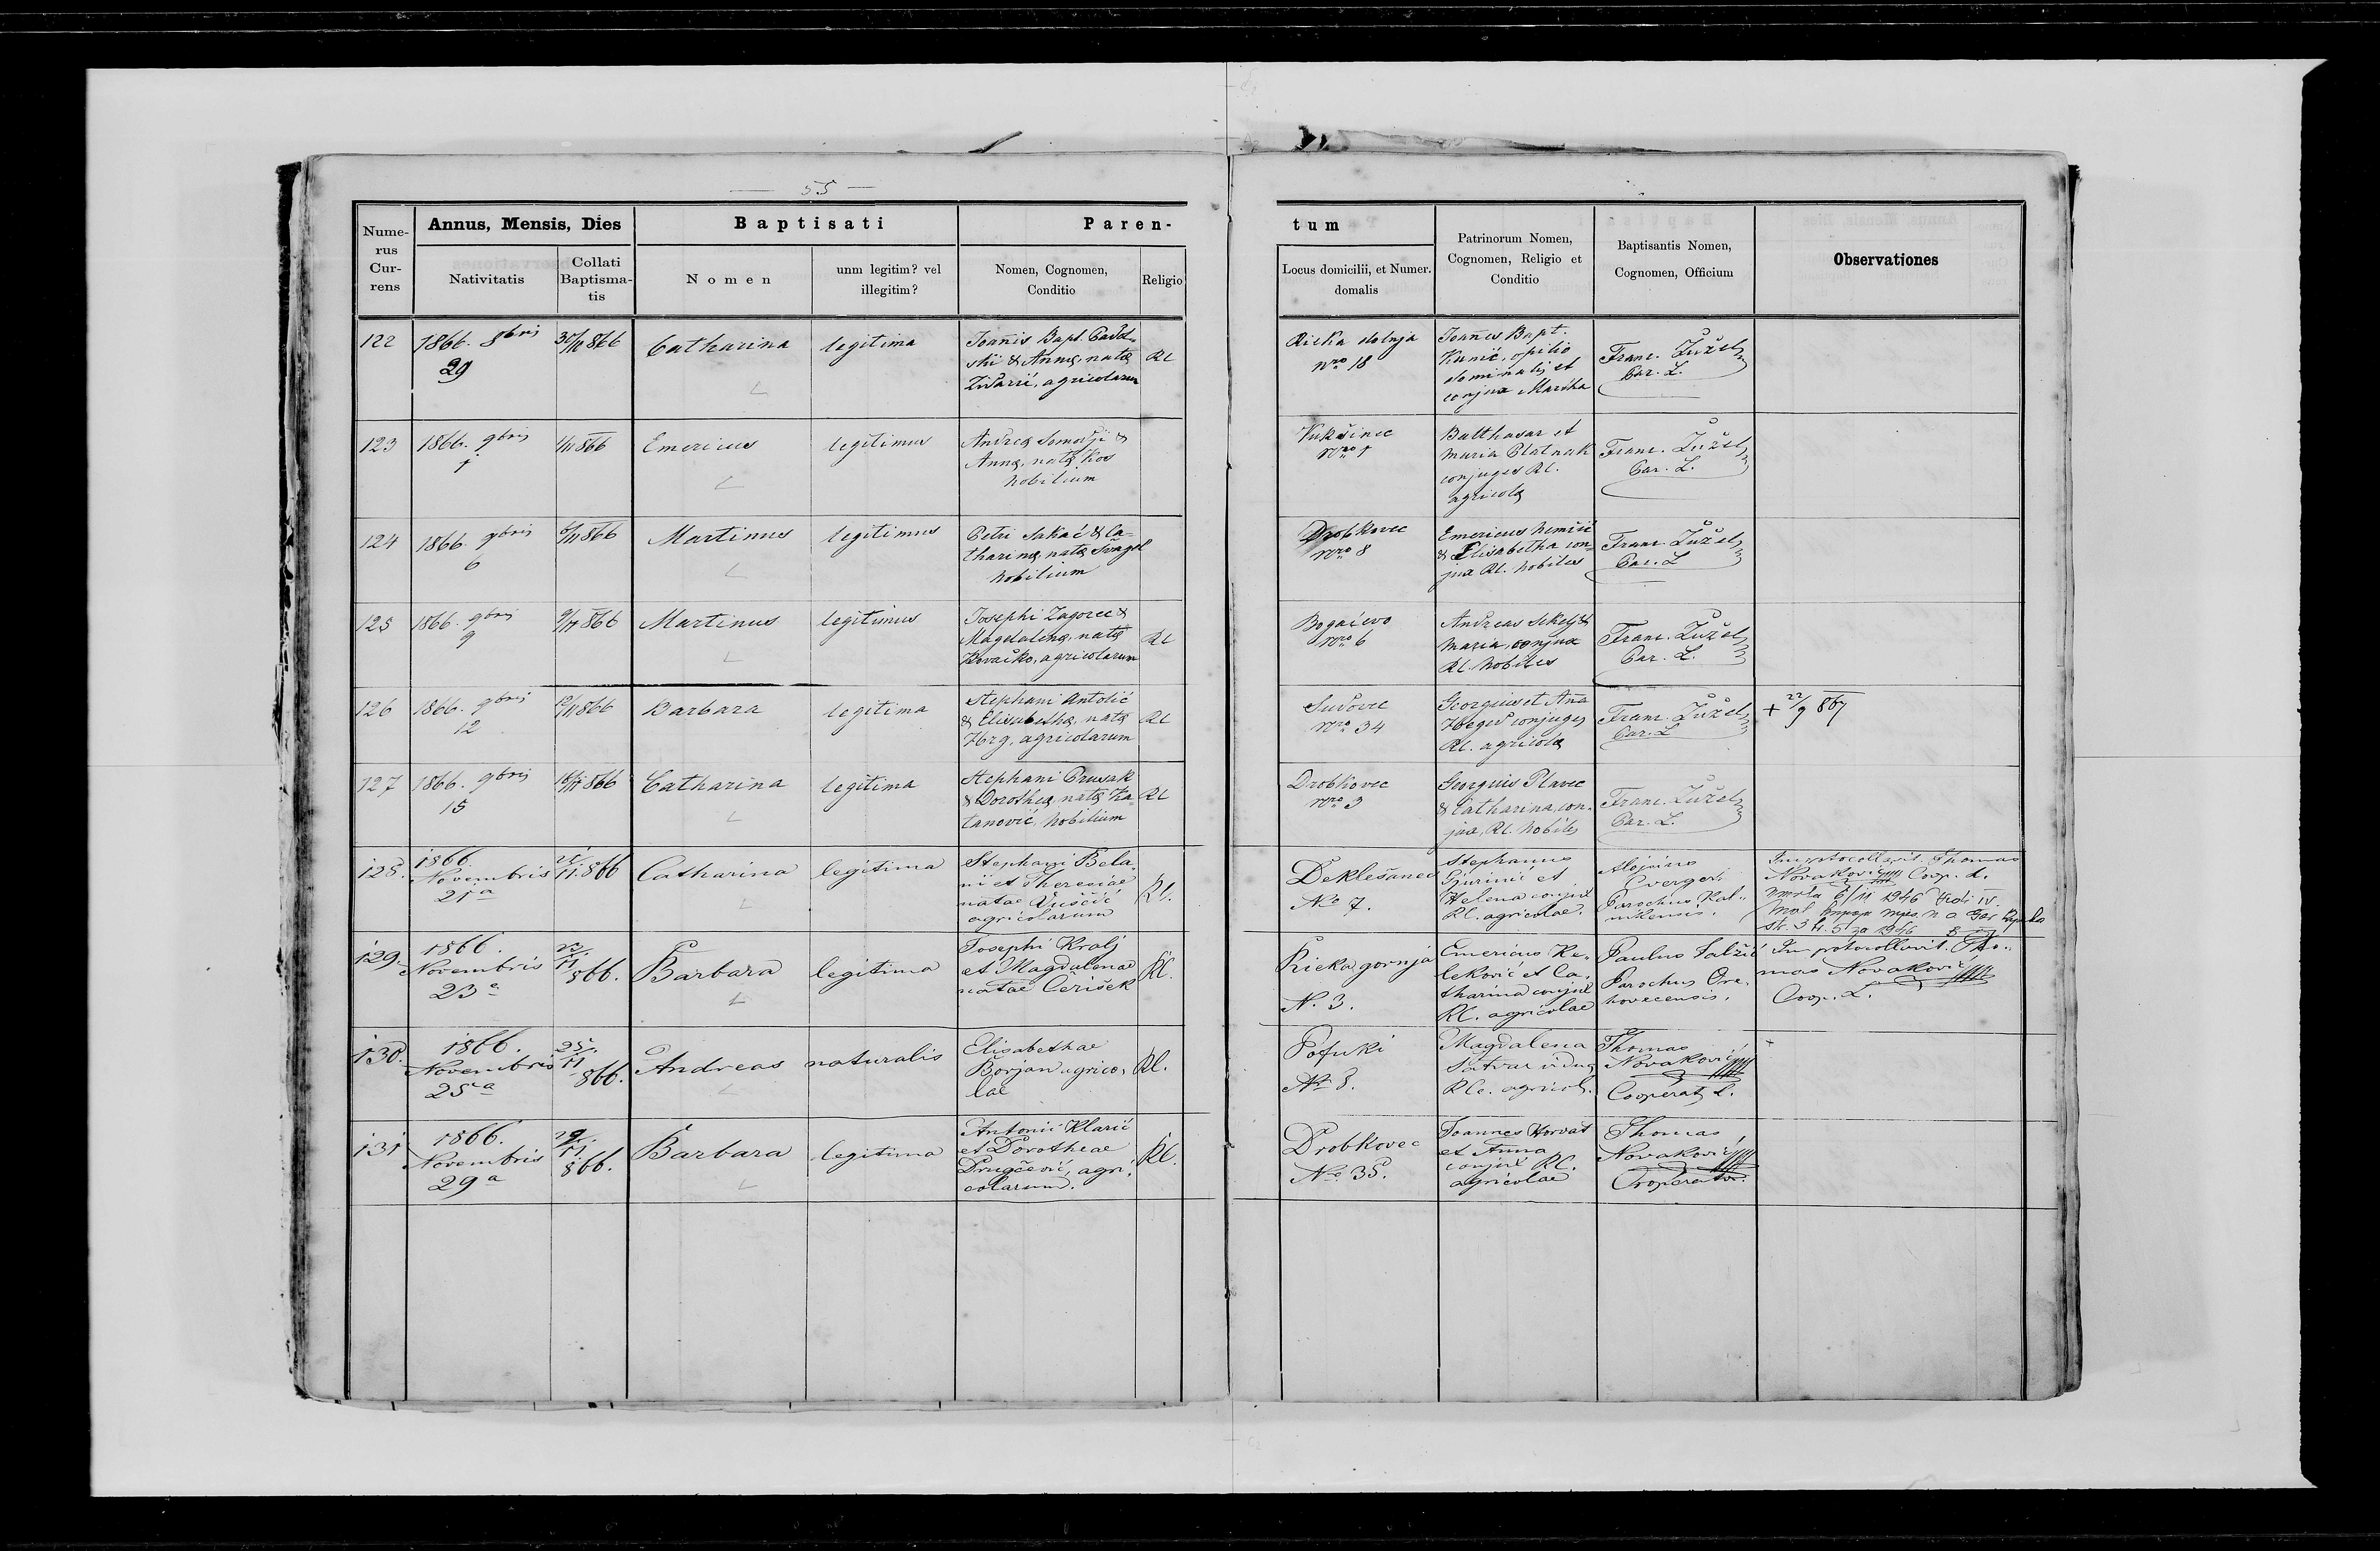 55
Nume-
rus
Cur-
rens
Annus, Mensis, Dies
Nativitatis
Collati
Baptisma-
tis
Baptisati
Nomen
unm legitim? vel
illegitim?
Paren-
Nomen, Cognomen,
Conditio
Religio
tum
Locus domicilii, et Numer.
domalis
Patrinorum Nomen,
Cognomen, Religio et
Conditio
Baptisantis Nomen,
Cognomen, Officium
Observationes
122
1866. 8bris
29
30/10 866
Catharina
legitima
Joannis Bapt.
& Annę, natę
agricolarum
RC
Rieka dolnja
Nro 18
Joanes Bapt.
Kunić, opilio
dominalis et
conjux Martha
Franc. Žužel
Par. L.
123
1866. 9bris
1
1/11 866
Emericus
legitimus
Andreę Somogji &
Annę, natę Kos
Nobilium
Vukšinec
Nro 1
Balthasar et
Maria Platnak
conjuges RC.
agricolę
Franc. Žužel
Par. L.
124
1866. 9bris
6
6/11 866
Martinus
legitimus
Petri Sakać & Ca-
tharinę, natę Švagel
Nobilium
Drobkovec
Nro 8
Emericus Nemčić
& Elisabetha con-
jux RC. Nobiles
Franc. Žužel
Par. L
125
1866. 9bris
9
9/11 866
Martinus
legitimus
Josephi Zagorec &
Magdalenę, natę
Kovačko, agricolarum
RC
Bogaćevo
Nro 6
Andreas Sekelj &
Maria, conjux
RC. Nobiles
Franc. Žužel
Par. L.
126
1866. 9bris
12
12/11 866
Barbara
legitima
Stephani Antolić
& Elisabethę, natę
Herg, agricolarum
RC
Sudovec
Nro 34
Georgius et Ana
conjuges
RC. agricolę
Franc. Žužel
Par. L
+ 22/9 867
127
1866. 9bris
15
16/11 866
Catharina
legitima
Stephani Prusak
& Dorotheę, natę Ka-
tanović, Nobilium
RC
Drobkovec
Nro 3
Georgius Plavec
& Catharina, con-
jux, RC. Nobiles
Franc. Žužel
Par. L.
128.
1866.
Novembris
21a
21/11. 866
Catharina
legitima
Stephani Bela-
nii et Theresiae
natae
agricolarum
RC.
Deklešanec
No 7.
Stephanus
Gjurinić et
Helena conjux
RC. agricolae.
Alojsius
Everger
Parochus Kal-
nikensis.
Improtocollavit. Thomas
Novaković Coop. L.
Umrla 6/11 1946
str. 3 za 1946
129.
1866.
Novembris
23a
23/11 866.
Barbara
legitima
Josephi Kralj
et Magdalenae
natae Cerišek
RC.
Rieka gornja
N. 3.
Emericus Ke-
leković et Ca-
tharina conjux
RC. agricolae
Paulus
Parochus Ore-
hovecensis.
Im protocollavit. Tho-
mas Novaković
Coop. L.
130.
1866.
Novembris
25a
25./11 866.
Andreas
naturalis
Elisabethae
Borjan agrico-
lae
RC.
Pofuki
No 8.
Magdalena
Šatvar vidua
RCe. agricol.
Thomas
Novaković
Cooperat. L.
+
131
1866.
Novembris
29a
29./11 866.
Barbara
legitima
Antonii Klarić
et Dorotheae
Drugčević, agri-
colarum.
RC.
Drobkovec
No 35.
Joannes Horvat
et Anna
conjux RC.
agricolae
Thomas
Novaković
Cooperator.